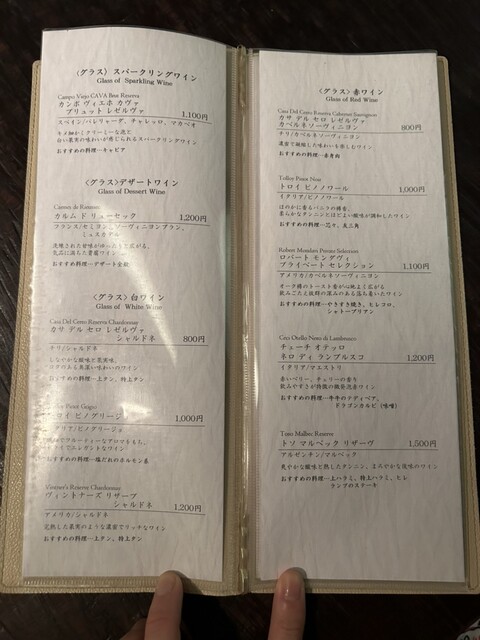 〈グラス〉スパークリングワイン
Glass of Sparkling Wine
Campo Viejo CAVA Brut Reserva
カンポ ヴィエホ カヴァ
ブリュット レゼルヴァ 1,100円
スペイン/パレリャーダ、チャレッロ、マカベオ
キメ細かくクリーミーな泡と
白い果実の味わいが感じられるスパークリングワイン
おすすめ料理…キャビア
〈グラス〉デザートワイン
Glass of Dessert Wine
Carmes de Rieussec
カルム ド リューセック 1,200円
フランス/セミヨン、ソーヴィニヨンブラン、
ミュスカデル
洗練された甘味がゆったりと広がる、
気品に満ちた貴腐ワイン
おすすめ料理…デザート全般
〈グラス〉白ワイン
Glass of White Wine
Casa Del Cerro Reserva Chardonnay
カサ デル セロ レゼルヴァ
シャルドネ 800円
チリ/シャルドネ
しなやかな酸味と果実味、
コクのある奥深い味わいのワイン
おすすめ料理…上タン、特上タン
Pinot Grigio
ロイ ピノグリージョ 1,000円
タリア/ピノグリージョ
フルーティーなアロマをもち、
でエレガントなワイン
おすすめの料理…塩だれのホルモン系
Vintner's Reserve Chardonnay
ヴィントナーズ リザーブ
シャルドネ 1,200円
アメリカ/シャルドネ
完熟した果実のような濃密でリッチなワイン
おすすめの料理…上タン、特上タン
〈グラス〉赤ワイン
Glass of Red Wine
Casa Del Cerro Reserva Cabernet Sauvignon
カサ デル セロ レゼルヴァ
カベルネソーヴィニヨン 800円
チリ/カベルネソーヴィニヨン
濃密で凝縮した味わいを楽しむワイン
おすすめの料理…赤身肉
Tolloy Pinot Noir
トロイ ピノノワール 1,000円
イタリア/ピノノワール
ほのかに香るバニラの種香、
柔らかなタンニンとほどよい酸味が調和したワイン
おすすめの料理…芯々、友三角
Robert Mondavi Private Selection
ロバート モンダヴィ
プライベート セレクション 1,100円
アメリカ/カベルネソーヴィニヨン
オーク樽のトースト香が心地よく広がる
飲みごたえ抜群の深みのある落ち着いたワイン
おすすめの料理…やきすき焼き、ヒレコロ、
シャトーブリアン
Ceci Otello Nero di Lambrusco
チェーチ オテッロ
ネロ ディ ランブルスコ 1,200円
イタリア/マエストリ
赤いベリー、チェリーの香り
飲みやすさが特徴の微発泡赤ワイン
おすすめの料理…牛牛のナディベア、
ドラゴンカルビ(味噌)
Toso Malbec Reserve
トソ マルベック リザーヴ 1,500円
アルゼンチン/マルベック
爽やかな酸味と熟したタンニン、まろやかな後味のワイン
おすすめの料理…上ハラミ、特上ハラミ、ヒレ
ランプのステーキ